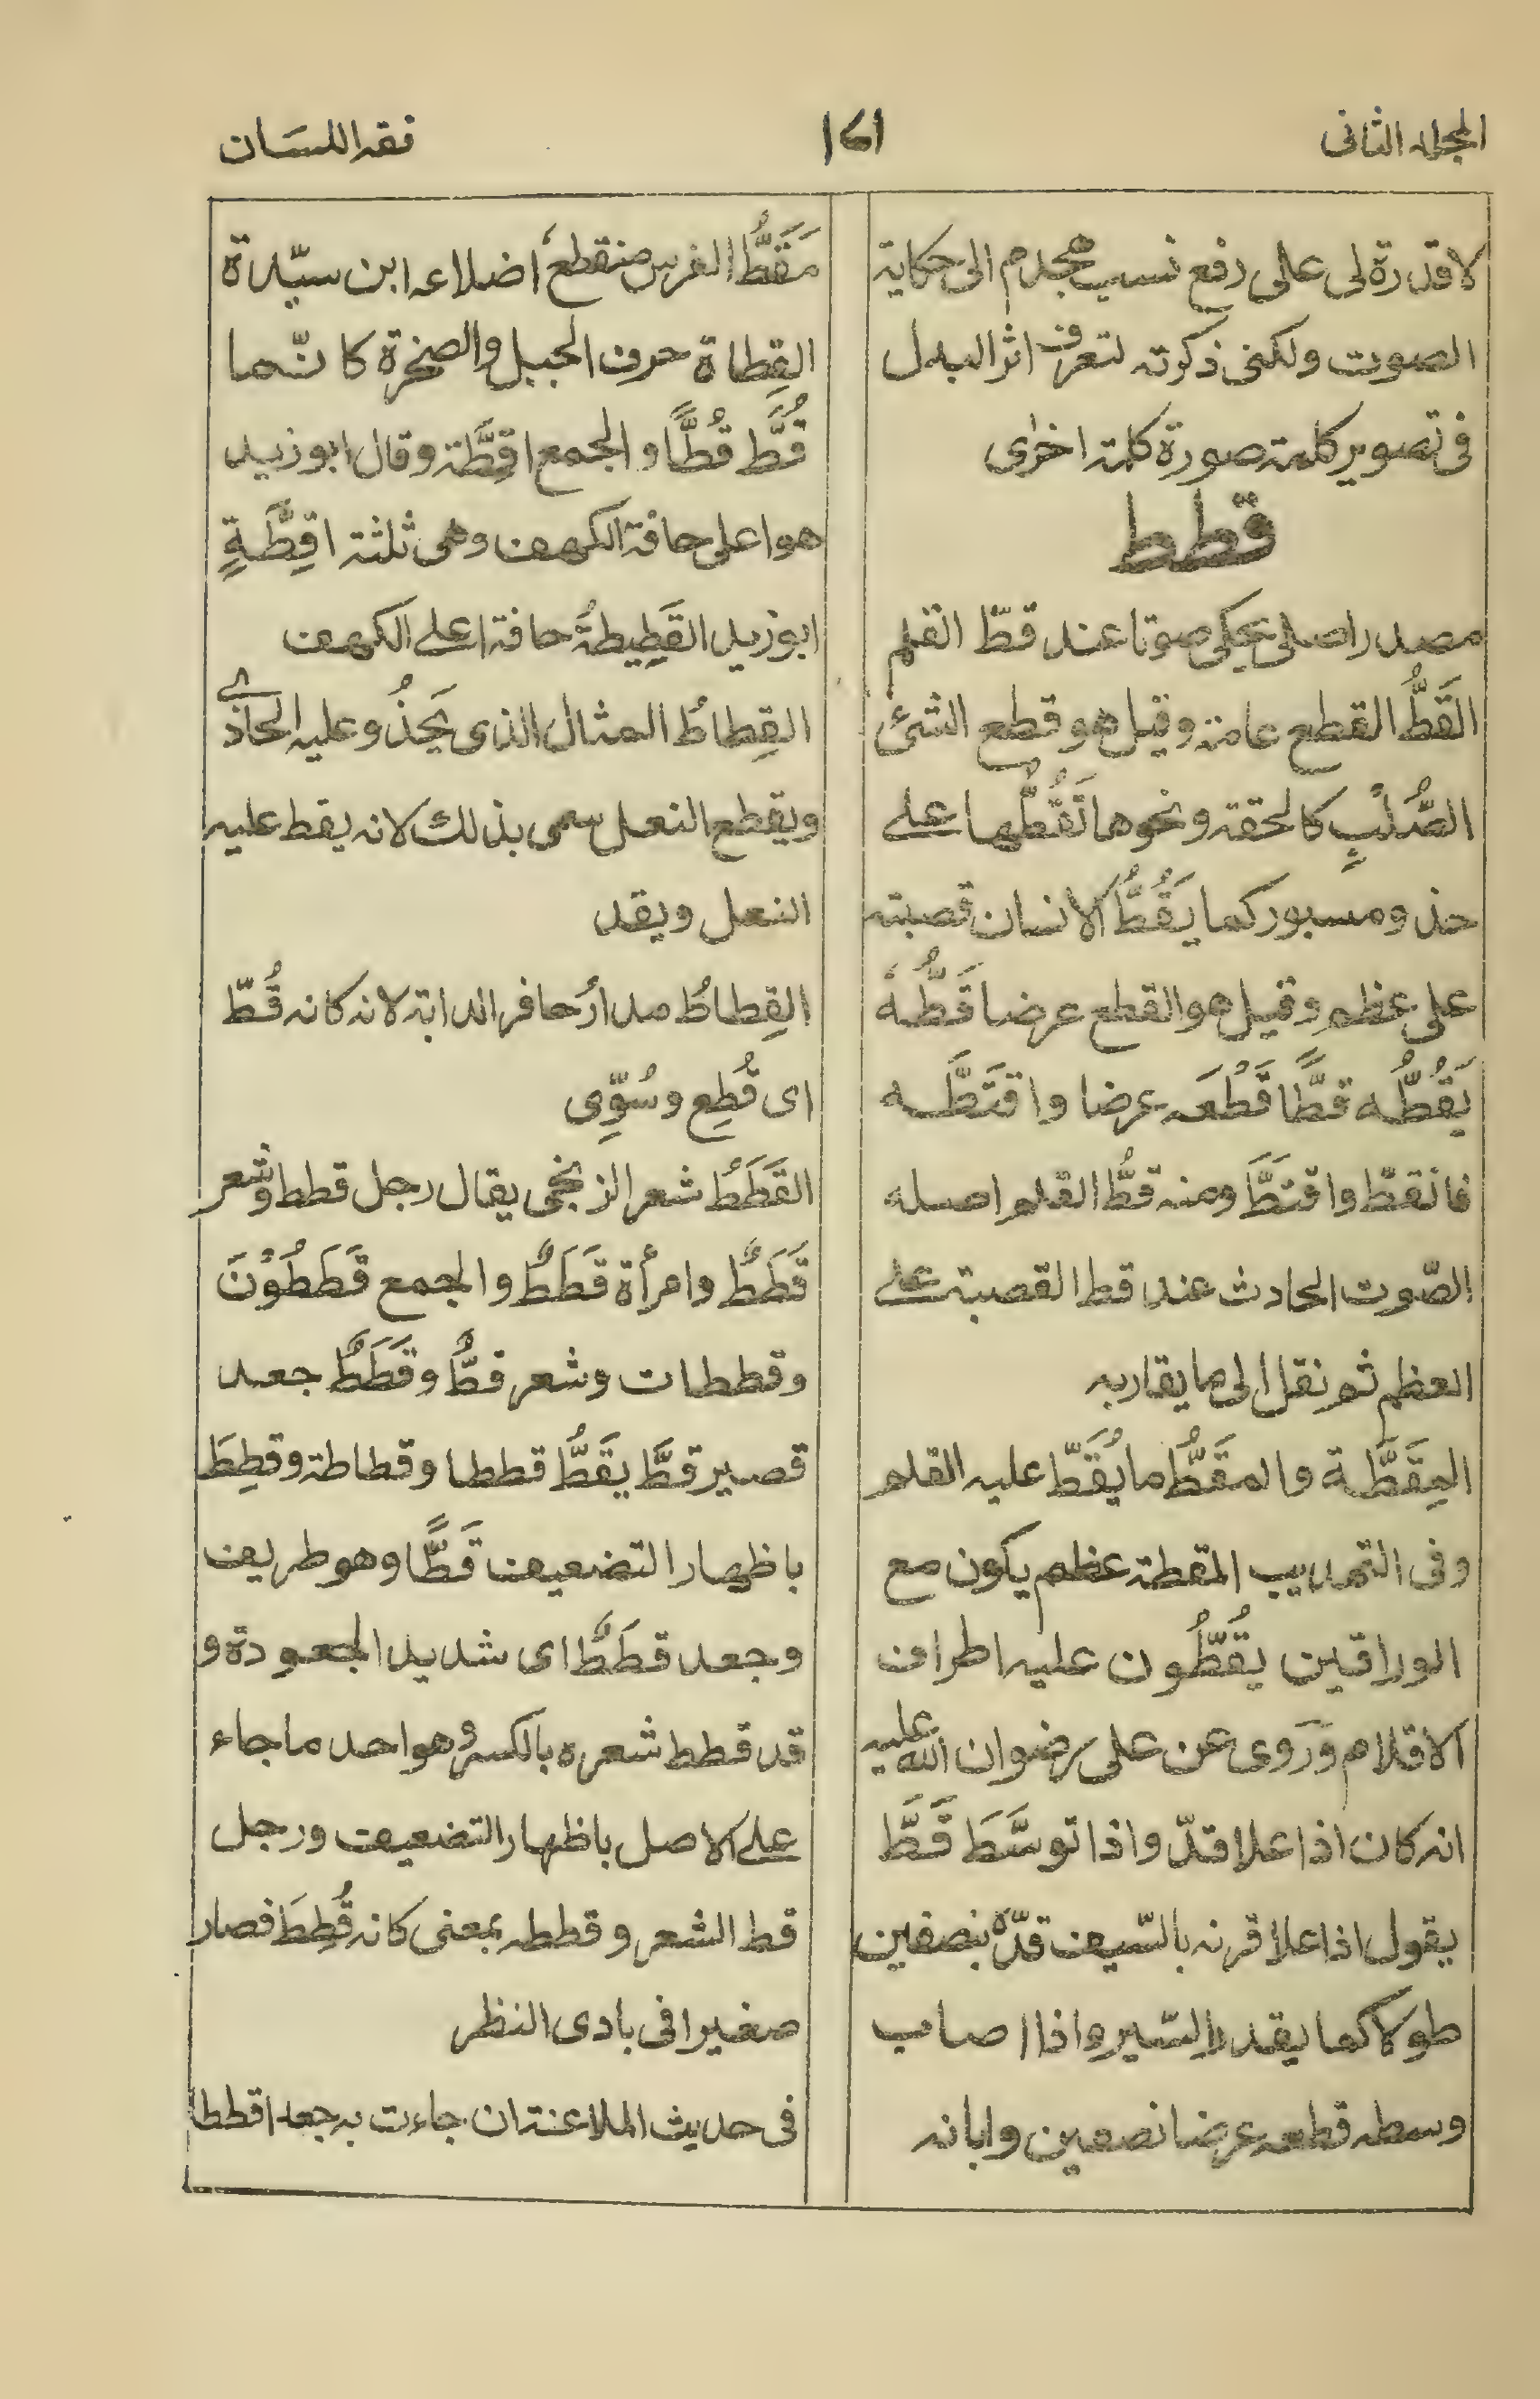 المجلد الثانی
۱۲۱
فقه اللسَان
لا قدرة لی علی رفع نسب مجذم الی حکایة
الصوت ولکنی ذکرته لتعرف اثر البدل
فی تصویر کلمة صورة کلمة اخرٰی
قطط
مصدر اصلی یحکی صوتا عند قطّ القلم
القَطُّ القطع عامة وقیل هو قطع الشئ
الصُّلْبِ کالحقة ونحوها تَقُطُّها علے
حذو ومسبور کما یَقُطُّ الانسان قصبة
علی عظم وقیل هو القطع عرضا قَطَّهُ
یَقُطُّه قطًّا قَطْعَه عرضا واقتَطَّه
فانقطّ واقتَطَّ ومنه قطُّ القلم اصله
الصّوت الحادث عند قط القصبة علے
العظم ثم نقل الی ما یقاربه
المِقَطَّة والمقَطُّ ما یُقَطّ علیه القلم
وفی التهذیب المقطة عظم یکون مع
الوراقین یَقُطُّون علیه اطراف
الاقلام وَرَوی عن علی رضوان الله علیه
انه کان اذا علا قدّ واذا توسَّطَ قَطَّ
یقول اذا علا قرنه بالسّیف قدّهٗ بنصفین
طولا کما یقد السّیر واذا اصاب
وسطه قطعه عرضا نصفین وابانه
مَقَطُّ الفرس منقطعُ اضلاعه ابن سیّدة
القِطاة حرف الجبل والصخرة کانّما
قُطَّ قُطًّا والجمع اقِطَّة وقال ابوزید
هو اعلی حافة الکهف وهی ثلثة اقِطَّةٍ
ابوزید القَطِیطةُ حافة اعلے الکهف
القِطاطُ المثال الذی یَحْذُو علیه الحاذی
ویقطع النعل سمی بذلك لانه یقط علیه
النعل ویقد
القِطاطُ مدارُ حافر الدابة لانه کانه قُطّ
ای قُطِع وسُوِّی
القَطَطُ شعر الزنجی یقال رجل قطط وشعر
قَطَطٌ وامرأة قَطَطٌ والجمع قَطَطُوْنَ
وقططات وشعر قطٌّ وقَطَطٌ جعد
قصیر قطَّ یقَطُّ قططا وقطاطة وقطِطَ
باظهار التضعیف قَطًّا وهو طریف
وجعد قطَطٌ ای شدید الجعودة و
قد قطط شعره بالکسر وهو احد ما جاء
علے الاصل باظهار التضعیف ورجل
قط الشعر وقططه بمعنی کانه قُطِطَ فصار
صغیرا فی بادی النظر
فی حدیث الملاعنة ان جاءت به جعدا قططا